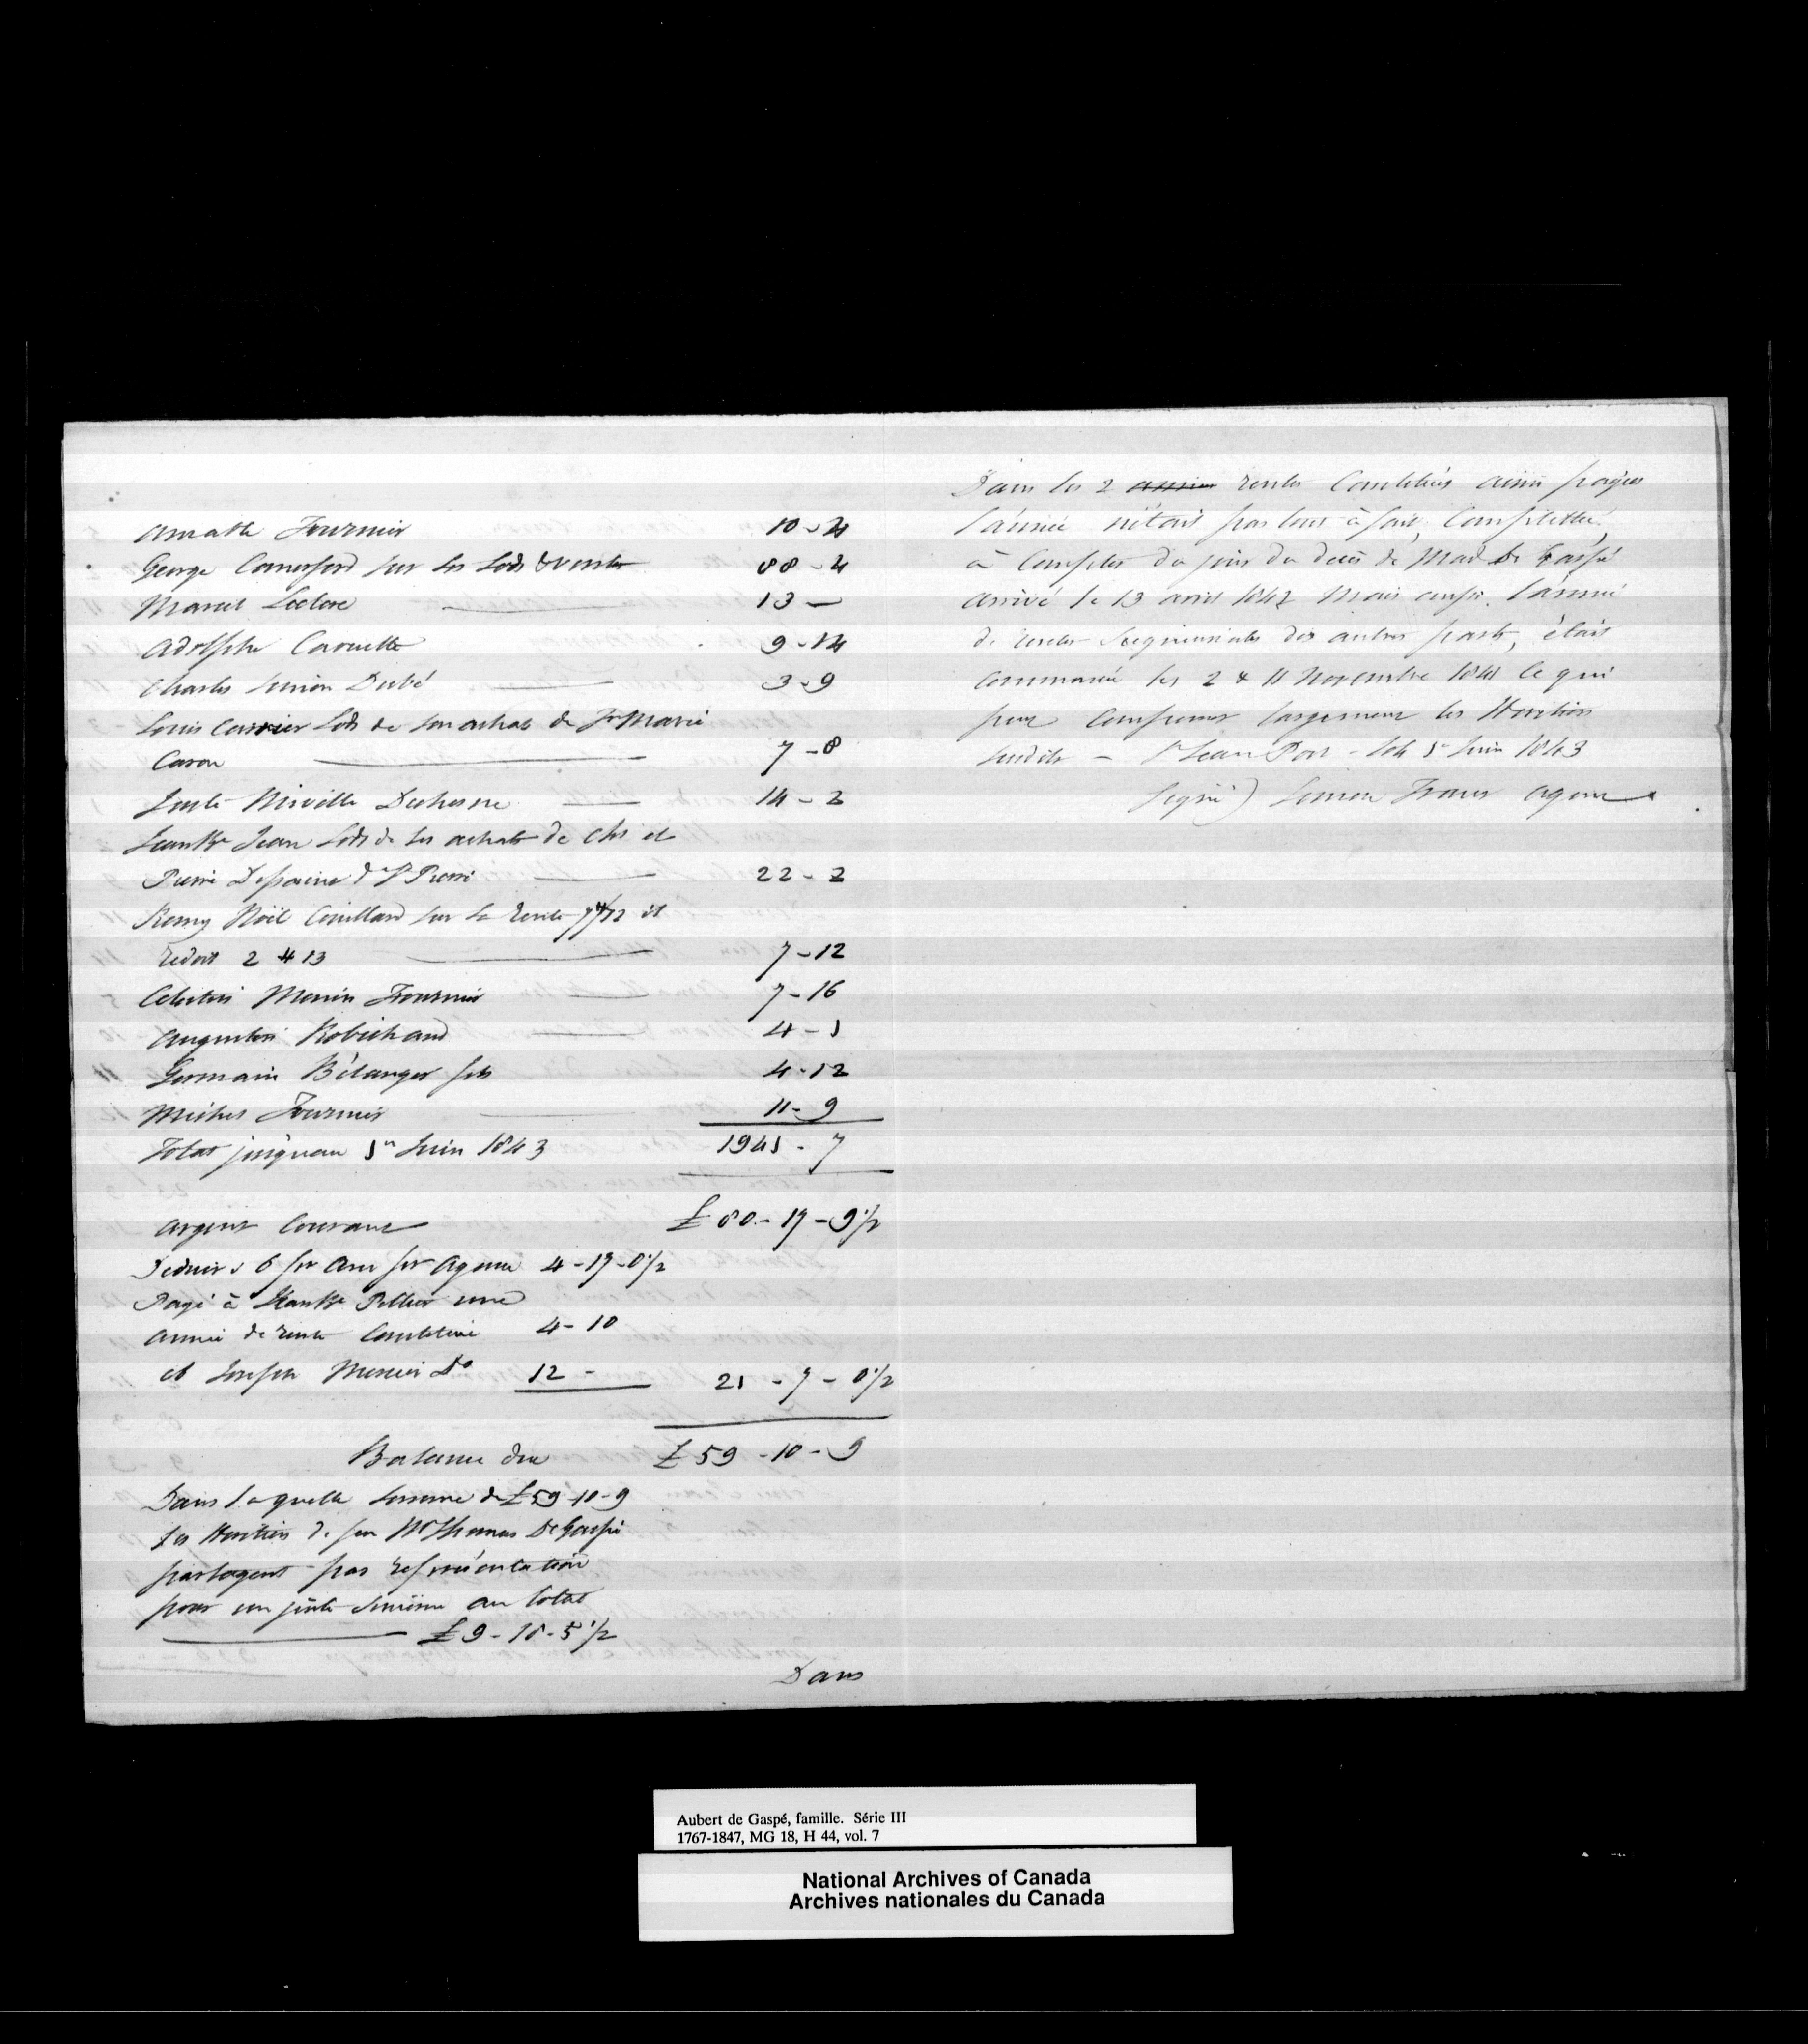 Amable Fournier 10 - 4
George Comerford sur les Lods & ventes 88 - 4
Marcel Leclerc 13 —
Adolphe Caouette 9 - 14
Charles Simon Dubé 3 - 9
Louis Carrier Lods de son achat de Jn Marie
Caron 7 - 8
Miville Dechesne 14 - 2
JeanBte Jean Lods de ses achats de Chs et
Pierre St Pierre 22 - 2
Remy Noël Couillard sur la rente et
redoit 2 # 13 7 - 12
Célestin Fournier 7 - 16
Augustin Robichaud 4 - 1
Germain Bélanger fils 4 - 12
Michel Fournier 11 - 9
Total jusqu'au 1er Juin 1843 1941 - 7
Argent Courant £ 80 - 17 - 9½
Déduire 6 par an pr Agence 4 - 17 - 0½
Payé à JeanBte Pellier une
année de rente Constituée 4 - 10
et Joseph Mercier Do 12 - 21 - 7 - 0½
Balance due £ 59 - 10 - 9
Dans laquelle somme de £ 59 - 10 - 9
Les Héritiers de feu Mr Thomas DeGaspé
partagent par représentation
pour un juste sixième au total
£ 9 - 18 - 5½
Dans
Dans les 2 rentes Constituées ainsi payées
l'année n'était pas tout à fait Complettée
à Compter du jour du décès de Mad De Gaspé
arrivé le 13 avril 1842 Mais aussi l'année
de rentes Seigneuriales des autres parts, était
Commencée les 2 & 11 Novembre 1841 Ce qui
peut Compenser largement les Héritiers
susdits — St Jean Port - Joli 1er Juin 1843
Signé) Simon Fraser agent
Aubert de Gaspé, famille. Série III
1767-1847, MG 18, H 44, vol. 7
National Archives of Canada
Archives nationales du Canada